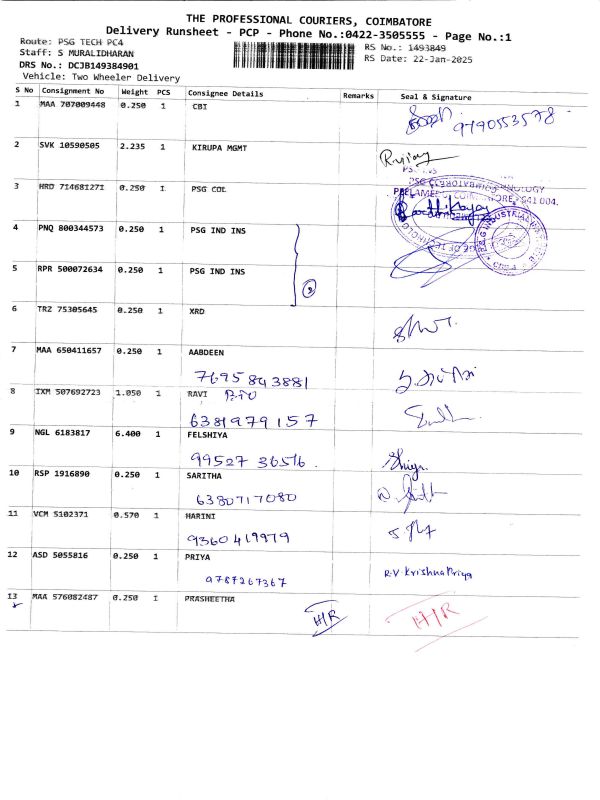 THE PROFESSIONAL COURIERS, COIMBATORE
Delivery Runsheet - PCP - Phone No.:0422-3505555 - Page No.:1
Route: PSG TECH PC4 RS No.: 1493849
Staff: S MURALIDHARAN RS Date: 22-Jan-2025
DRS No.: DCJB149384901
Vehicle: Two Wheeler Delivery
S No Consignment No Weight PCS Consignee Details Remarks Seal & Signature
1 MAA 707009448 0.250 1 CBI
9790553578
2 SVK 10590505 2.235 1 KIRUPA MGMT
3 HRD 714681271 0.250 1 PSG COL
4 PNQ 800344573 0.250 1 PSG IND INS
5 RPR 500072634 0.250 1 PSG IND INS
2
6 TRZ 75305645 0.250 1 XRD
7 MAA 650411657 0.250 1 AABDEEN
7695843881
8 IXM 507692723 1.050 1 RAVI
6381979157
9 NGL 6183817 6.400 1 FELSHIYA
99527 36516
10 RSP 1916890 0.250 1 SARITHA
6380717080
11 VCM 5102371 0.570 1 HARINI
9360419979
12 ASD 5055816 0.250 1 PRIYA
9787267367 R.V.Krishna Priya
13 MAA 576082487 0.250 1 PRASHEETHA
H/R H/R